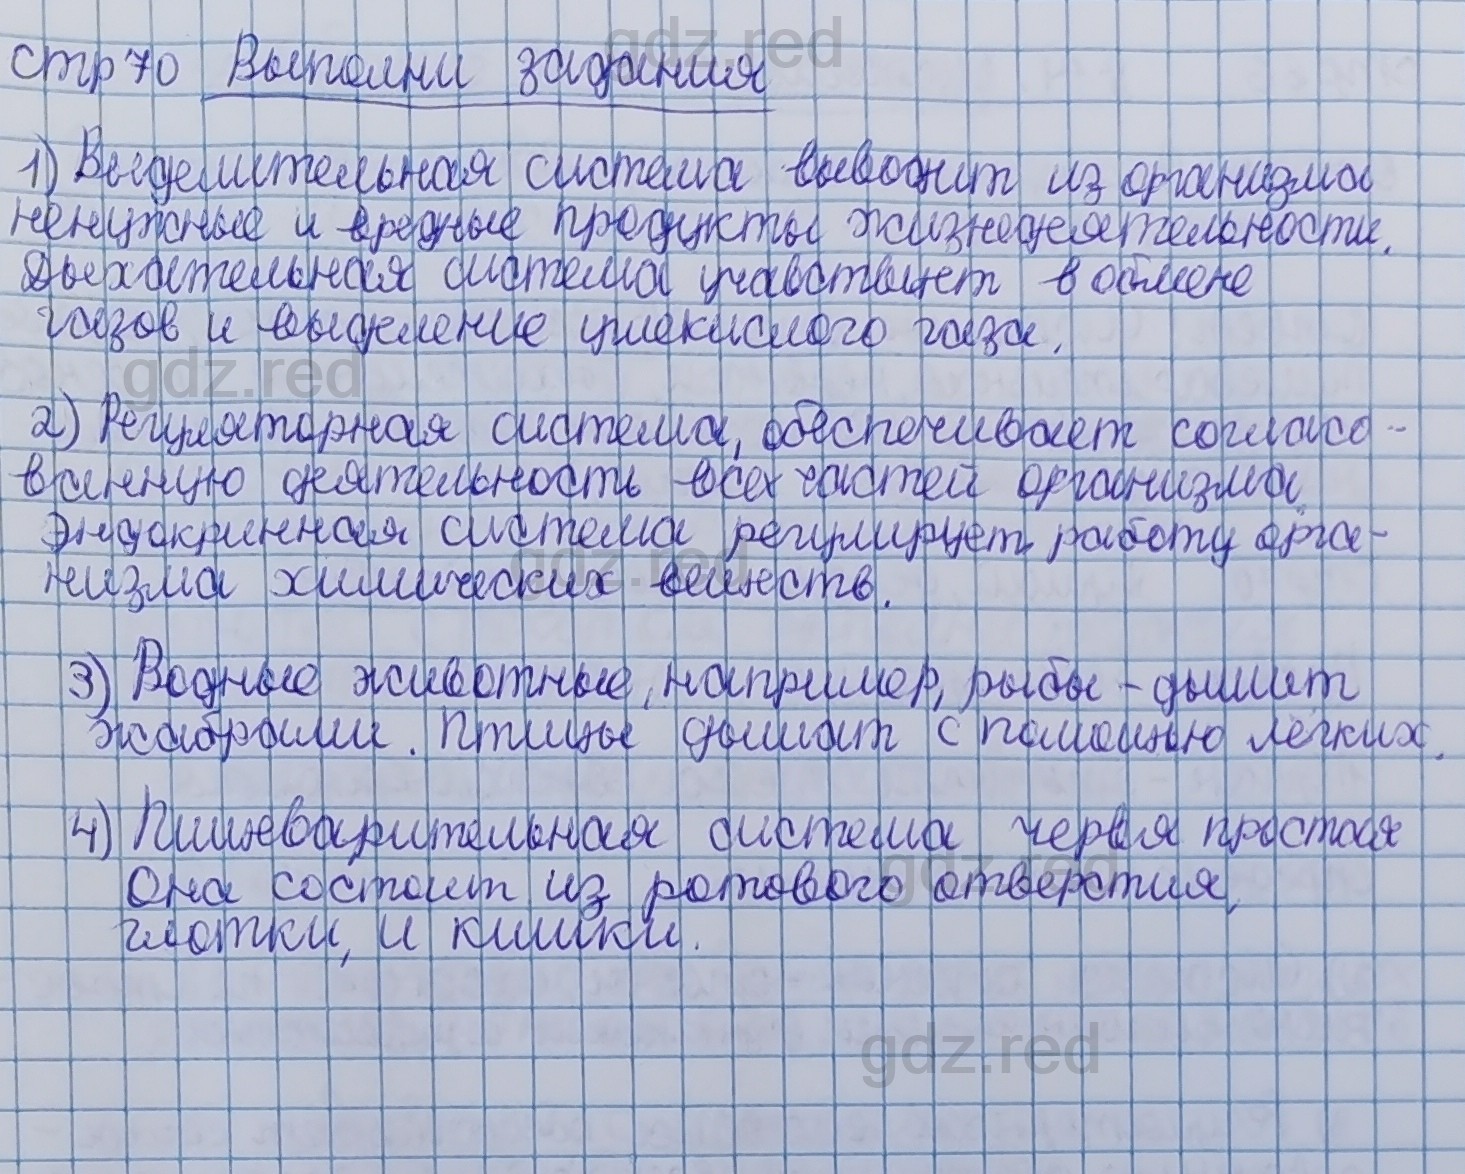 gdz.red
стр 70 Выполни задания
1) Выделительная система выводит из организма
ненужные и вредные продукты жизнедеятельности.
Дыхательная система учавствует в обмене
газов и выделение углекислого газа.
gdz.red
2) Регуляторная система, обеспечивает согласо-
ванную деятельность всех частей организма
Эндокринная система регулирует работу орга-
gdz.red
низма химических веществ.
3) Водные животные, например, рыбы - дышат
жабрами. Птицы дышат с помощью лёгких.
4) Пищеварительная система червя простая
gdz.red
Она состоит из ротового отверстия,
глотки, и кишки.
gdz.red